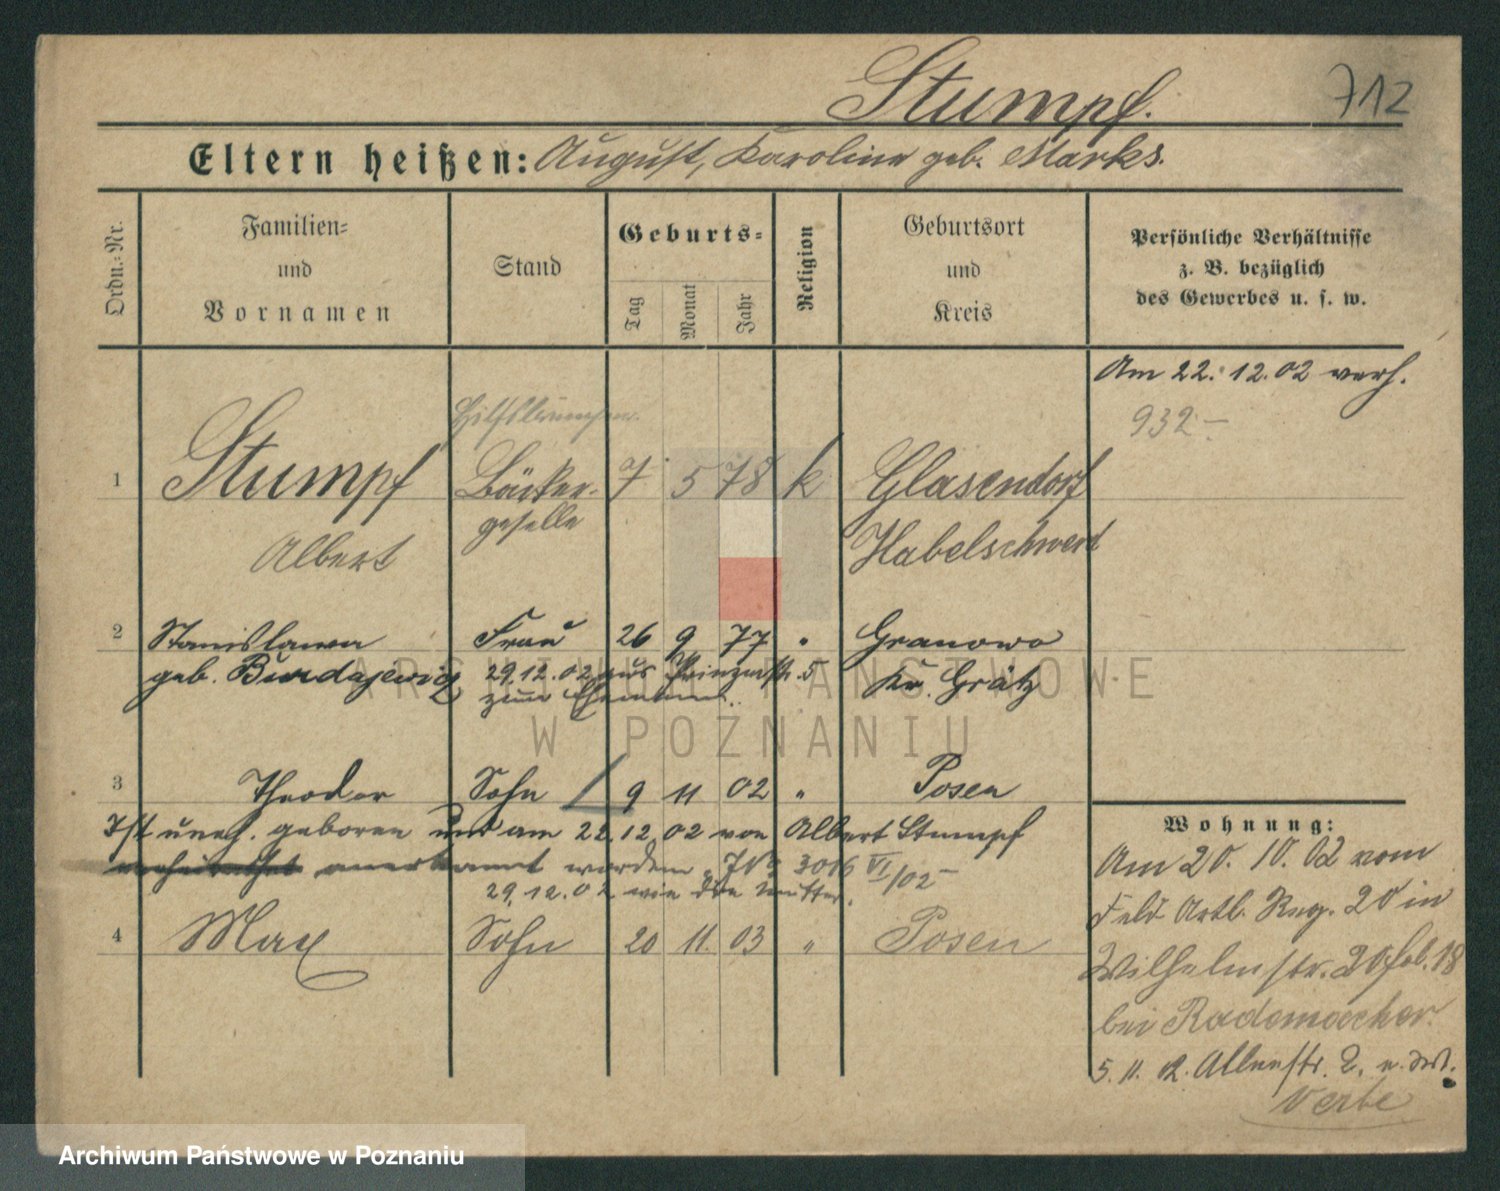 Stumpf.
712
Eltern heißen: August, Karoline geb. Marks.
Ordn.-Nr.
Familien-
und
Vornamen
Stand
Geburts-
Tag
Monat
Jahr
Religion
Geburtsort
und
Kreis
Persönliche Verhältnisse
z. B. bezüglich
des Gewerbes u. s. w.
Am 22. 12. 02 verh.
932 –
1 Stumpf Bäcker- 7 5 78 k Glasendorf
geselle
Albert Habelschwerdt
2 Stanislawa Frau 26 9 77 " Granowo
geb. Burdajewicz 29.12.02 aus Prinzenstr. 5 Kr. Grätz
zum Ehemann.
3 Theodor Sohn 9 11 02 " Posen
Ist uneh. geboren und am 22.12.02 von Albert Stumpf
anerkannt worden. 3016 VI/02
29.12.02 wie die Mutter.
4 Max Sohn 20 11. 03 " Posen
Wohnung:
Am 20. 10. 02 vom
Feld Artl. Reg. 20 in
Wilhelmstr. 20
bei Rademacher.
5. 11. 02. 2.
ARCHIWUM PAŃSTWOWE
W POZNANIU
Archiwum Państwowe w Poznaniu